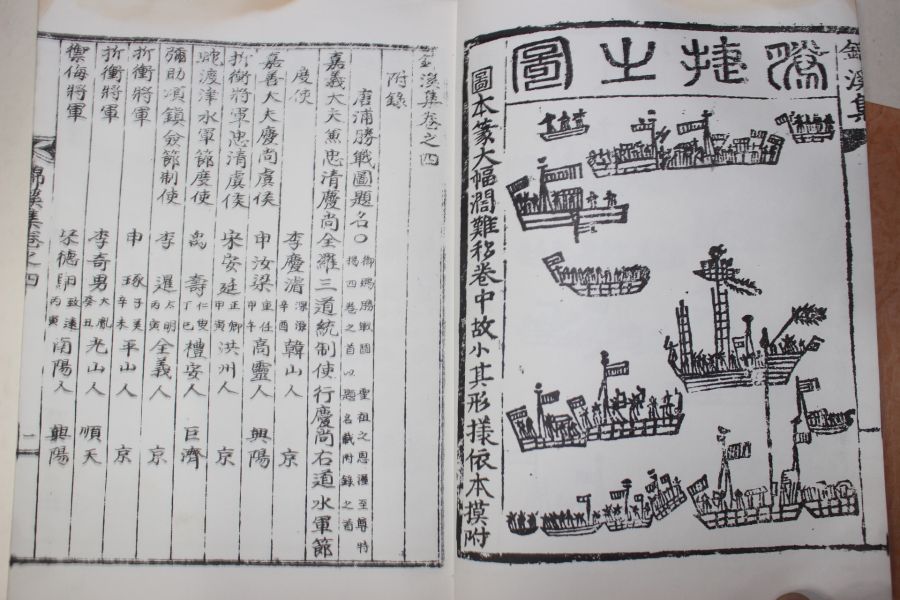 錦溪集
勝捷之圖
圖本篆大幅濶難於卷中故小其形樣依本摸附
錦溪集卷之四
附錄
唐浦勝戰圖題名○御賜勝戰圖 靈祖之恩渥至尊特揭四卷之首以題名載附錄之首
嘉義大夫兼忠清慶尚全羅三道統制使行慶尚右道水軍節
度使 李慶濬 辛酉 韓山人 京
嘉善大夫慶尚虞侯 申汝梁 重任甲午 高靈人 興陽
折衝將軍忠清虞侯 宋安廷 正卿甲寅 洪州人 京
蛇渡津水軍節度使 禹壽 仁叟丁巳 禮安人 巨濟
彌助項鎮僉節制使 李暹 太明丙寅 全義人 京
折衝將軍 申琢 子美辛未 平山人 京
折衝將軍 李奇男 大胤癸丑 光山人 順天
禦侮將軍 宋德馹 致遠丙寅 南陽人 興陽
錦溪集卷之四 一